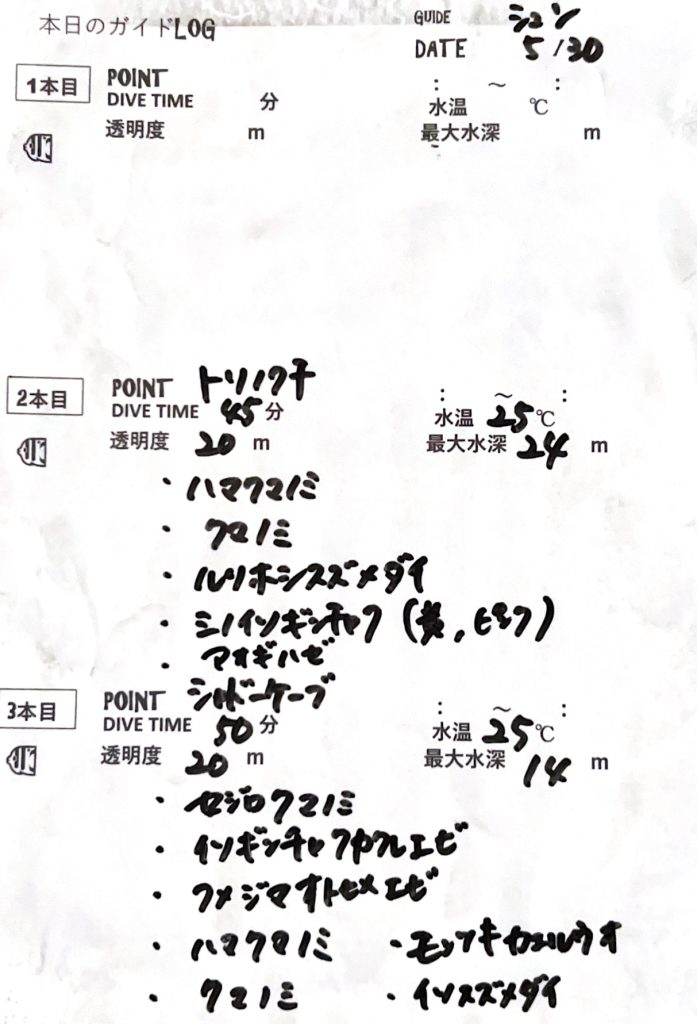 本日のガイドLOG
GUIDE シュン
DATE 5/30
1本目 POINT : ～ :
DIVE TIME 分 水温 ℃
透明度 m 最大水深 m
2本目 POINT トリノクチ : ～ :
DIVE TIME 45分 水温 25℃
透明度 20 m 最大水深 24 m
・ハマクマノミ
・クマノミ
・ルリホシスズメダイ
・ミノイソギンチャク (黄,ピンク)
・アオギハゼ
3本目 POINT シルバーケーブ : ～ :
DIVE TIME 50分 水温 25℃
透明度 20 m 最大水深 14 m
・セジロクマノミ
・イソギンチャクカクレエビ
・フメジマオトヒメエビ
・ハマクマノミ ・モンツキカエルウオ
・クマノミ ・イソスズメダイ